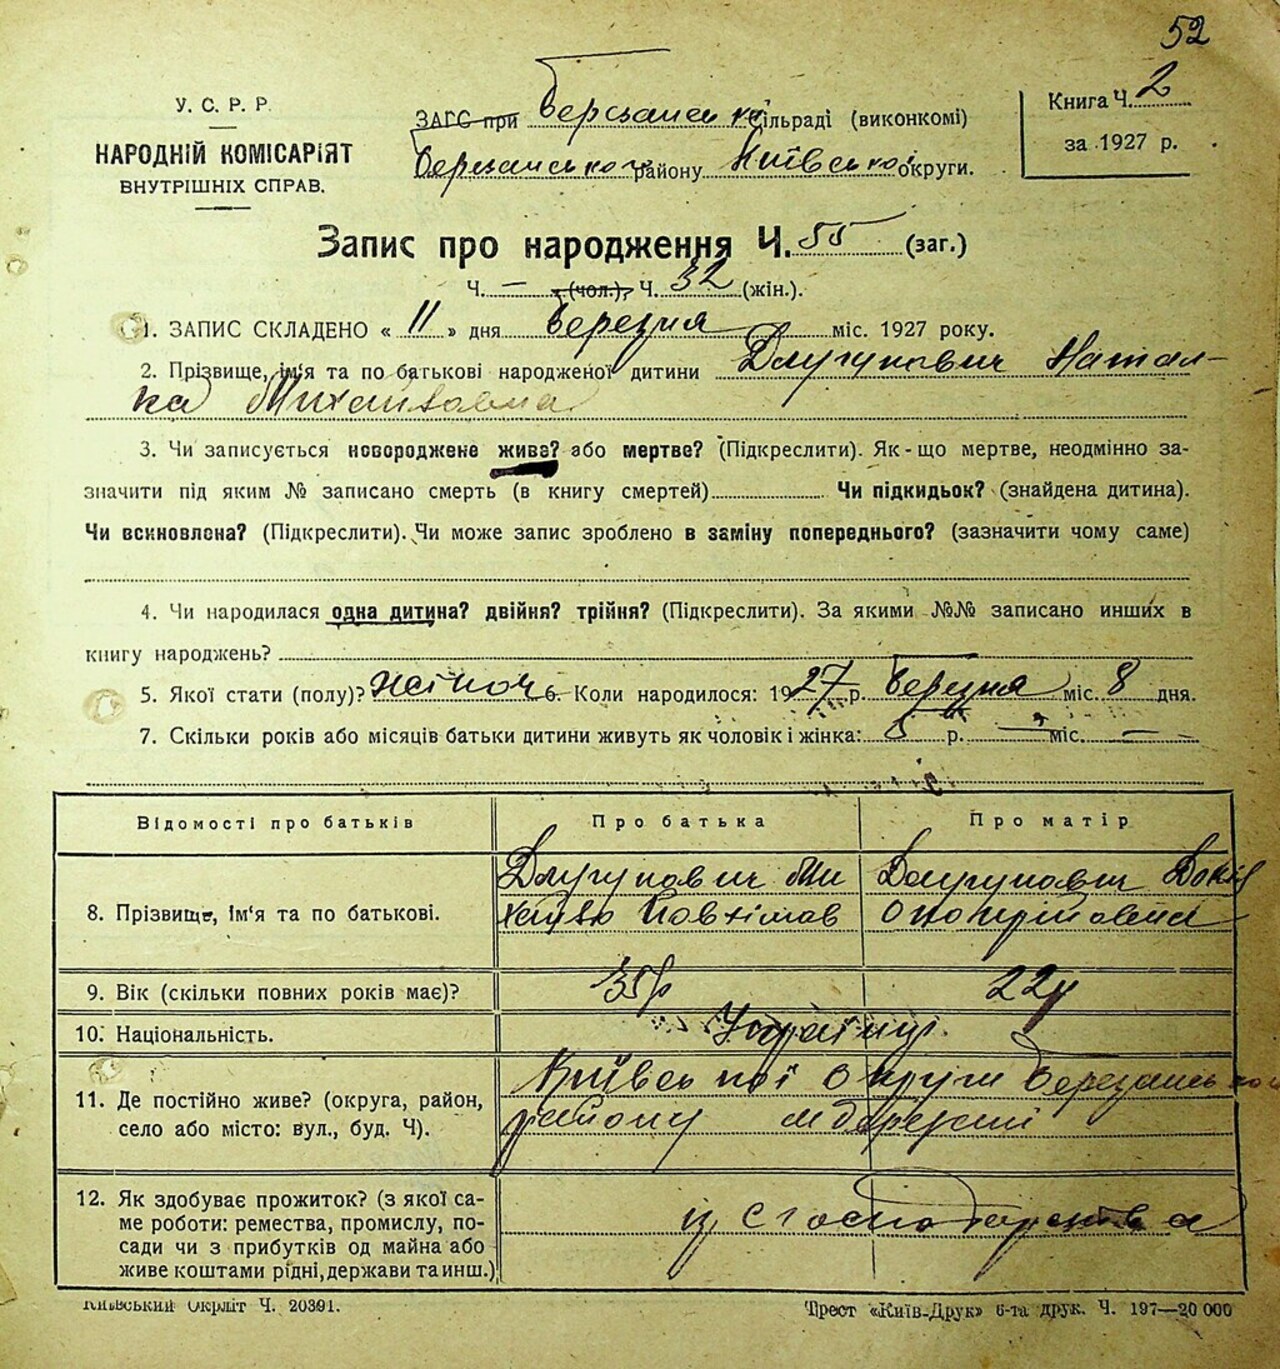 52
У. С. Р. Р.
НАРОДНІЙ КОМІСАРІЯТ
ВНУТРІШНІХ СПРАВ.
ЗАГС при Березанській Сільраді (виконкомі)
Березанського району Київської округи.
Книга Ч. 2
за 1927 р.
Запис про народження Ч. 55 (заг.)
Ч. — (чол.), Ч. 32 (жін.).
1. ЗАПИС СКЛАДЕНО « 11 » дня березня міс. 1927 року.
2. Прізвище, ім'я та по батькові народженої дитини Длугунович Натал-
ка Михайловна
3. Чи записується новороджене живе? або мертве? (Підкреслити). Як-що мертве, неодмінно за-
значити під яким № записано смерть (в книгу смертей) Чи підкидьок? (знайдена дитина).
Чи вскновлена? (Підкреслити). Чи може запис зроблено в заміну попереднього? (зазначити чому саме)
4. Чи народилася одна дитина? двійня? трійня? (Підкреслити). За якими №№ записано инших в
книгу народжень?
5. Якої стати (полу)? жіноч 6. Коли народилося: 1927 р. березня міс. 8 дня.
7. Скільки років або місяців батьки дитини живуть як чоловік і жінка: 5 р. — міс. — —
Відомості про батьків Про батька Про матір
8. Прізвище, ім'я та по батькові. Длугунович Ми Длугунович
9. Вік (скільки повних років має)? 35 р 22 р
10. Національність. Українці.
11. Де постійно живе? (округа, район,
село або місто: вул., буд. Ч). Київської округи Березансько
району м Березані
12. Як здобуває прожиток? (з якої са-
ме роботи: ремества, промислу, по-
сади чи з прибутків од майна або
живе коштами рідні, держави та инш.)
Київський Окрліт Ч. 20391.
Трест «Київ-Друк» 6-та друк. Ч. 197—20 000